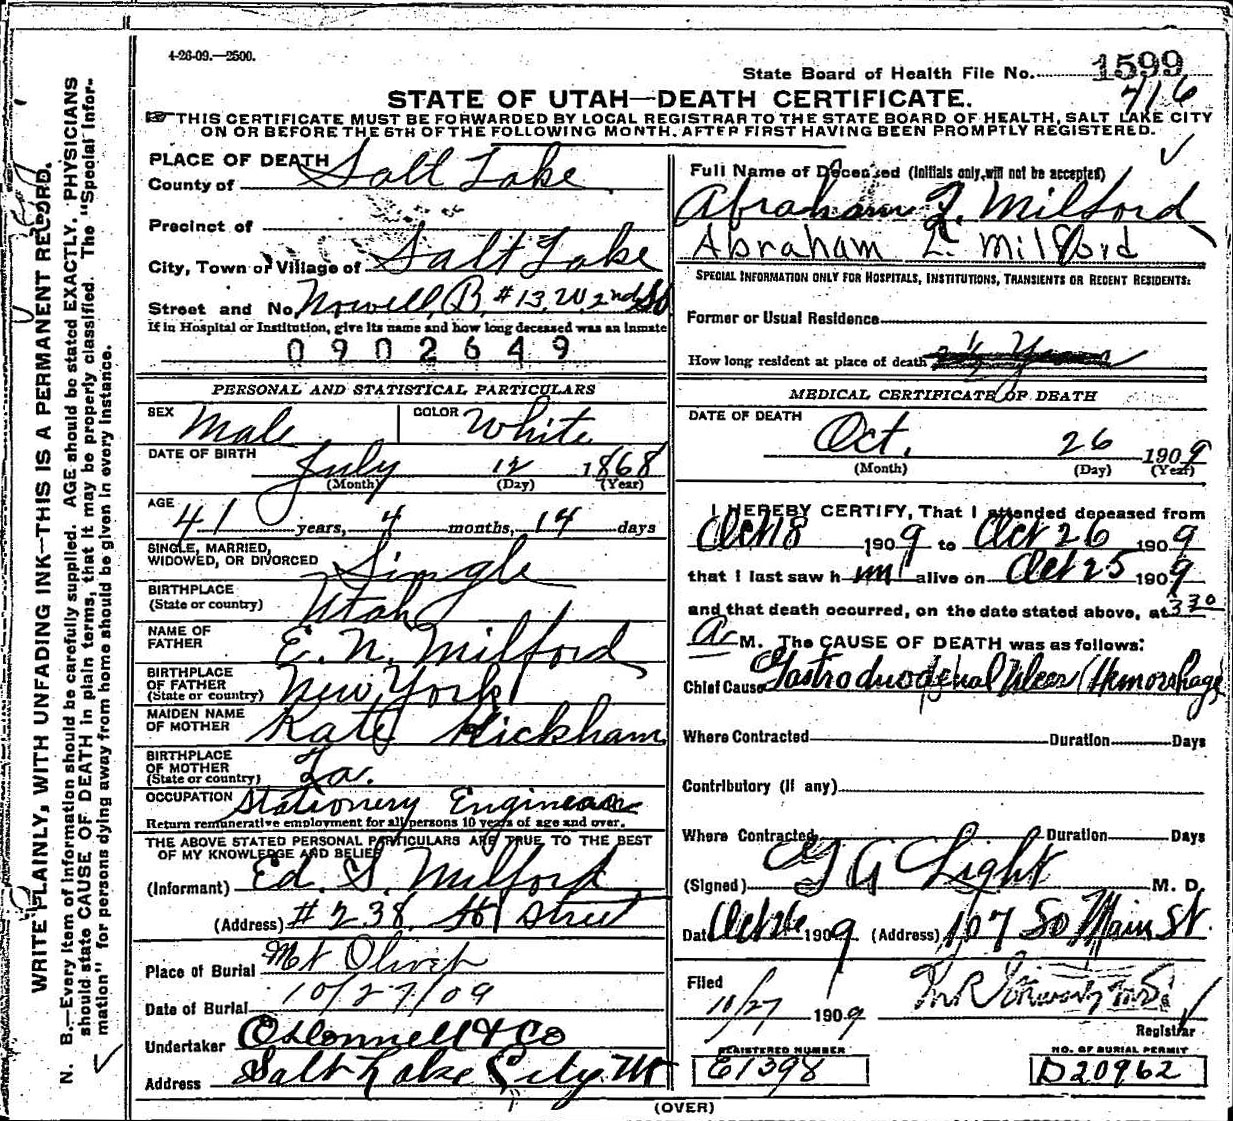 4-26-09.—2500.
State Board of Health File No. 1599
716
STATE OF UTAH—DEATH CERTIFICATE.
☞THIS CERTIFICATE MUST BE FORWARDED BY LOCAL REGISTRAR TO THE STATE BOARD OF HEALTH, SALT LAKE CITY
ON OR BEFORE THE 5TH OF THE FOLLOWING MONTH. AFTER FIRST HAVING BEEN PROMPTLY REGISTERED.
WRITE PLAINLY, WITH UNFADING INK—THIS IS A PERMANENT RECORD.
N. B.—Every item of information should be carefully supplied. AGE should be stated EXACTLY. PHYSICIANS
should state CAUSE OF DEATH in plain terms, that it may be properly classified. The "Special Infor-
mation" for persons dying away from home should be given in every instance.
PLACE OF DEATH
County of Salt Lake
Precinct of
City, Town or Village of Salt Lake
Street and No. Nowell, B. #13, W. 2nd So
If in Hospital or Institution, give its name and how long deceased was an inmate
0902649
PERSONAL AND STATISTICAL PARTICULARS
SEX Male COLOR White
DATE OF BIRTH July 12 1868
(Month) (Day) (Year)
AGE 41 years, 4 months, 14 days
SINGLE, MARRIED,
WIDOWED, OR DIVORCED Single
BIRTHPLACE
(State or country) Utah
NAME OF
FATHER E. N. Milford
BIRTHPLACE
OF FATHER
(State or country) New York
MAIDEN NAME
OF MOTHER Kate Hickham
BIRTHPLACE
OF MOTHER
(State or country) La.
OCCUPATION Stationery Engineer
Return remunerative employment for all persons 10 years of age and over.
THE ABOVE STATED PERSONAL PARTICULARS ARE TRUE TO THE BEST
OF MY KNOWLEDGE AND BELIEF
(Informant) Ed. S. Milford
(Address) #238 Street
Place of Burial Mt Olivet
Date of Burial 10/27/09
Undertaker O'Donnell & Co
Address Salt Lake City Ut
Full Name of Deceased (Initials only will not be accepted)
Abraham L. Milford
Abraham L. Milford
SPECIAL INFORMATION ONLY FOR HOSPITALS, INSTITUTIONS, TRANSIENTS OR RECENT RESIDENTS:
Former or Usual Residence
How long resident at place of death
MEDICAL CERTIFICATE OF DEATH
DATE OF DEATH
Oct. 26 1909
(Month) (Day) (Year)
I HEREBY CERTIFY, That I attended deceased from
Oct 18 1909 to Oct 26 1909
that I last saw h im alive on Oct 25 1909
and that death occurred, on the date stated above, at 3 30
A M. The CAUSE OF DEATH was as follows:
Chief Cause Gastroduodenal Ulcer (Hemorrhage)
Where Contracted Duration Days
Contributory (If any)
Where Contracted Duration Days
(Signed) G A Light M. D.
Date Oct 26 1909 (Address) 107 So Main St.
Filed
10/27 1909
Registrar
REGISTERED NUMBER
E1398
NO. OF BURIAL PERMIT
D20962
(OVER)